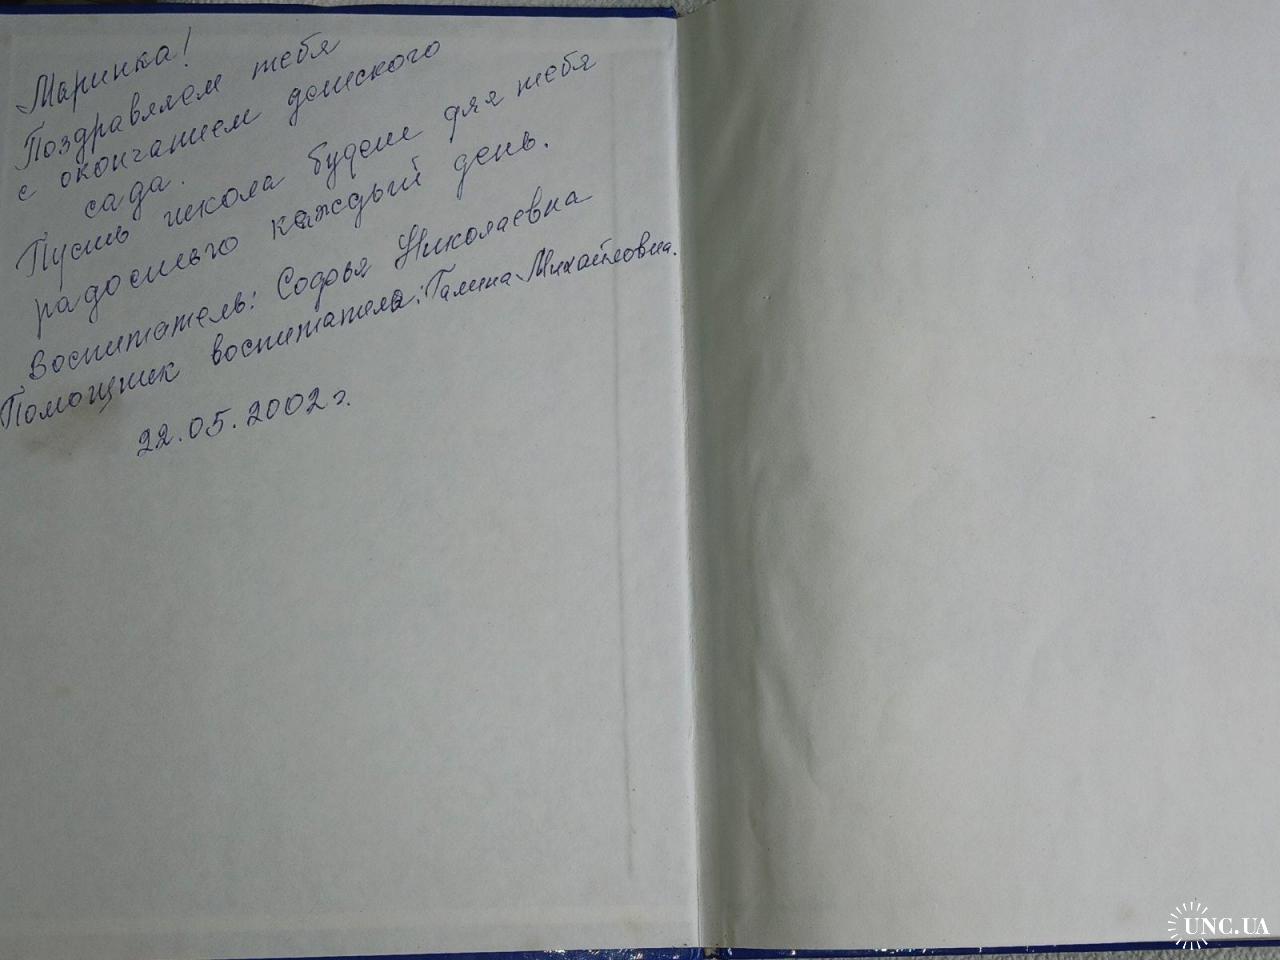 Маринка!
Поздравляем тебя
с окончанием детского
сада.
Пусть школа будет для тебя
радостью каждый день.
Воспитатель: Софья Николаевна
Помощник воспитателя: Галина Михайловна.
22.05.2002 г.
UNC.UA